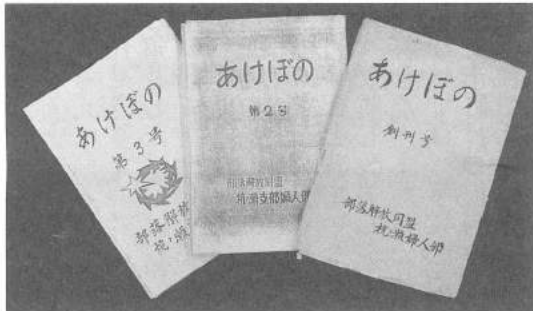 あけぼの
第3号
部落解放
杭ノ瀬
あけぼの
第2号
部落解放同盟
杭ノ瀬支部婦人部
あけぼの
創刊号
部落解放同盟
杭ノ瀬婦人部